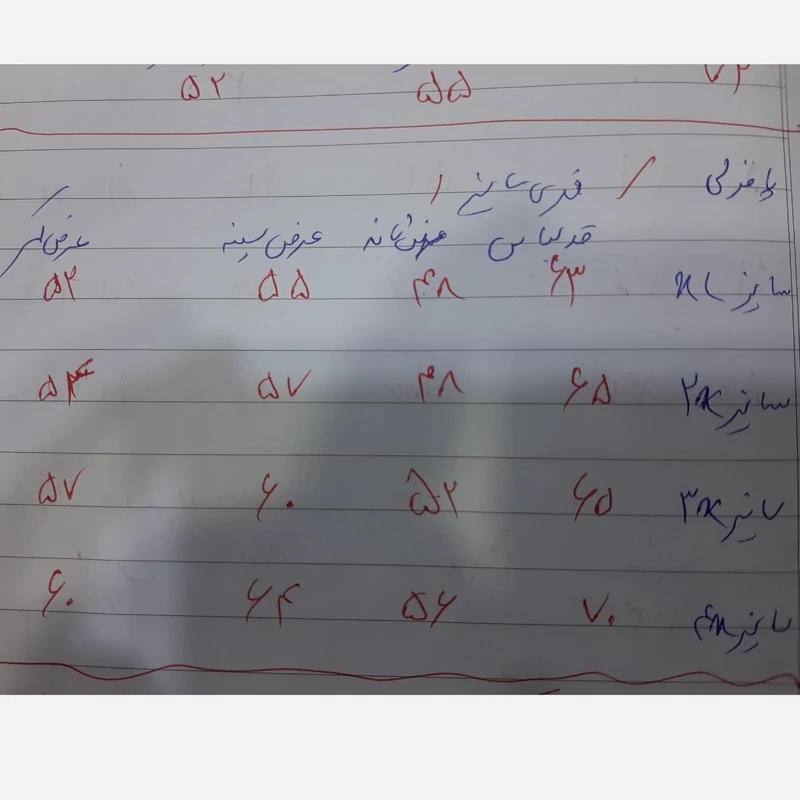 ۵۵ ۵۲
قدی سانتی /
قد لباس عرض شانه عرض سینه عرض کمر
سایز XL ۶۳ ۴۸ ۵۵ ۵۲
سایز ۲X ۶۵ ۴۸ ۵۷ ۵۴
سایز ۳X ۶۵ ۵۲ ۶۰ ۵۷
سایز ۴X ۷۰ ۵۶ ۶۴ ۶۰